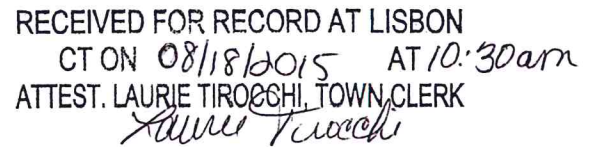 RECEIVED FOR RECORD AT LISBON
CT ON 08/18/2015 AT 10:30am
ATTEST. LAURIE TIROCCHI, TOWN CLERK
Laurie Tirocchi